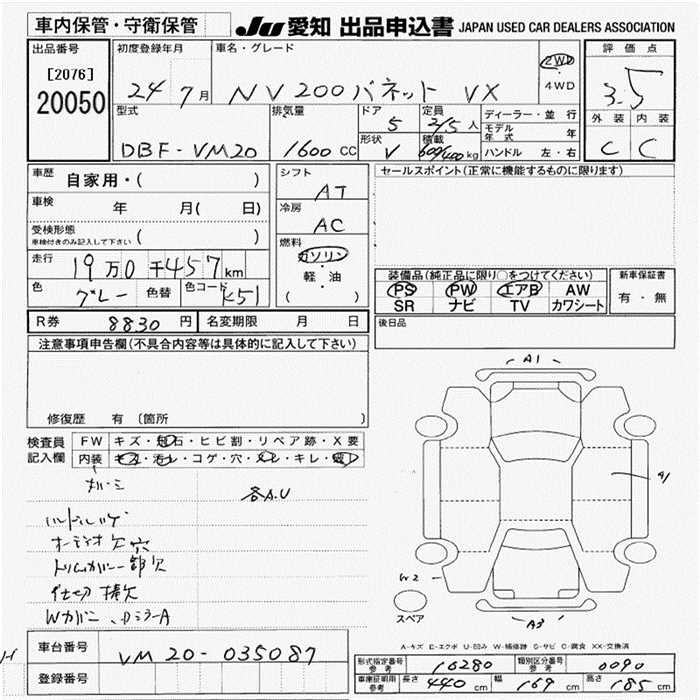 車内保管・守衛保管 JU 愛知 出品申込書 JAPAN USED CAR DEALERS ASSOCIATION
出品番号 初度登録年月 車名・グレード 評価点
[2076]
20050
24年7月 NV200バネット VX 2WD 4WD 3.5
型式 排気量 ドア 定員 ディーラー・並行 外装 内装
DBF-VM20 1600 CC 5 2/5人 モデル年式 年
形状 積載 ハンドル 左・右 C C
V 600/400kg
車歴 自家用・( ) シフト AT セールスポイント(正常に機能するものに限ります)
車検 年 月( 日) 冷房 AC
受検形態 ( )
車検付きのみ記入して下さい
燃料 ガソリン
軽・油
( )
走行 19万0千457km
色 グレー 色替 色コード K51
装備品(純正品に限り○をつけてください) 新車保証書
PS PW エアB AW 有・無
SR ナビ TV カワシート
R券 8830円 名変期限 月 日 後日品
注意事項申告欄(不具合内容等は具体的に記入して下さい)
修復歴 有 (箇所 )
検査員記入欄 FW キズ・飛石・ヒビ割・リペア跡・X要
内装 キズ・汚レ・コゲ・穴・スレ・キレ・破レ
各A.U
オーディオ欠穴
トリムカバー一部欠
仕切 積欠
A1
A1
W2
スペア
A3
A-キズ E-エクボ U-凹み W-補修跡 S-サビ C-腐食 XX-交換済
車台番号 VM20-035087
登録番号
形式指定番号 参考 16280 類別区分番号 参考 0090
車庫証明用 参考 長さ 440cm 幅 169cm 高さ 185cm